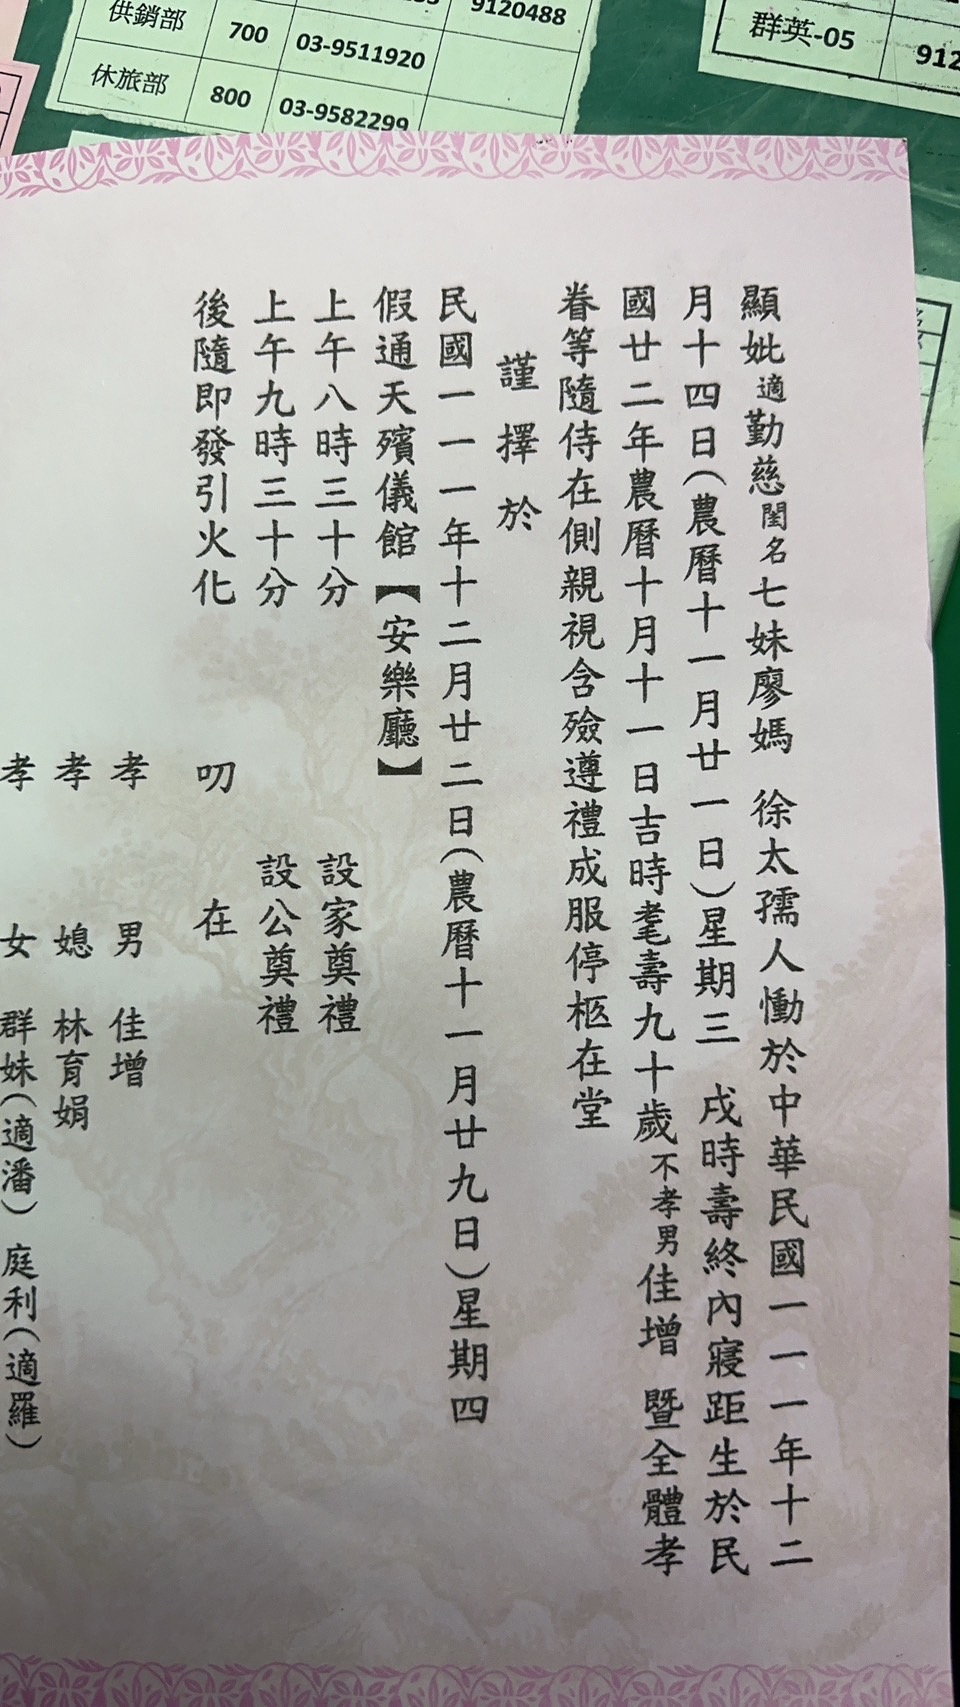 供銷部 700 03-9511920 9120488
休旅部 800 03-9582299
群英-05 912
顯妣適勤慈閨名七妹廖媽 徐太孺人慟於中華民國一一一年十二
月十四日(農曆十一月廿一日)星期三 戌時壽終內寢距生於民
國廿二年農曆十月十一日吉時耄壽九十歲不孝男佳增 暨全體孝
眷等隨侍在側親視含殮遵禮成服停柩在堂
謹擇於
民國一一一年十二月廿二日(農曆十一月廿九日)星期四
假通天殯儀館【安樂廳】
上午八時三十分 設家奠禮
上午九時三十分 設公奠禮
後隨即發引火化 叨 在
孝 男 佳增
孝 媳 林育娟
孝 女 群妹(適潘) 庭利(適羅)